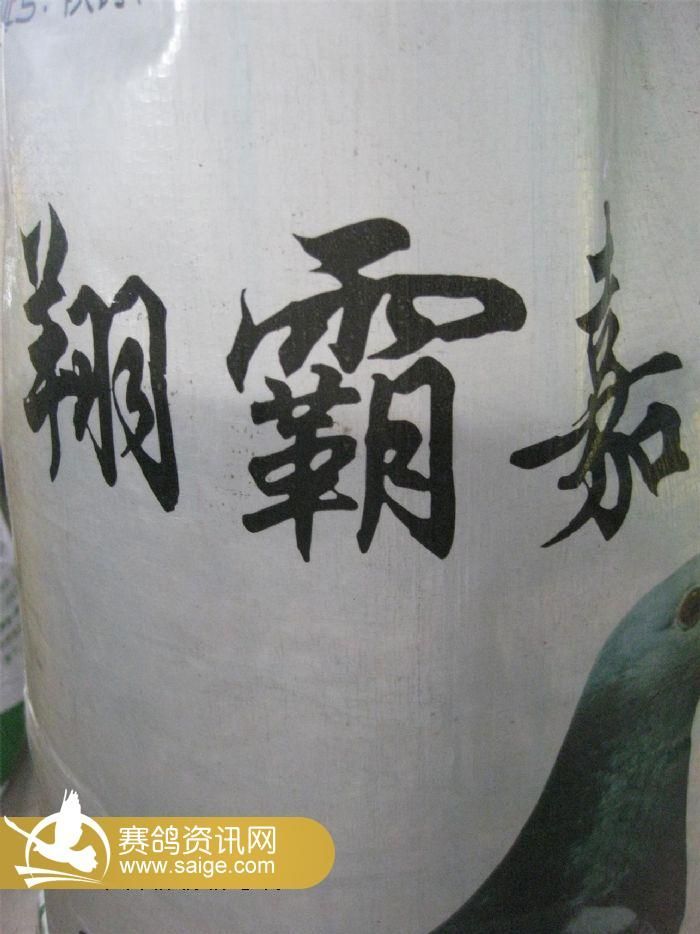 翔霸嘉
赛鸽资讯网
www.saige.com